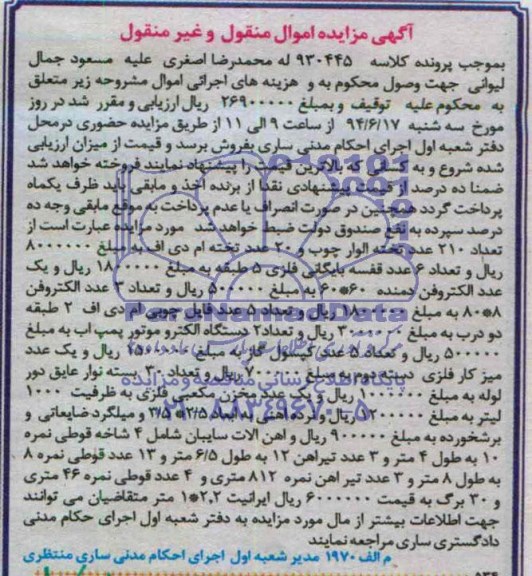 آگهی مزایده اموال منقول و غیر منقول
بموجب پرونده کلاسه ۹۳۰۴۴۵ له محمدرضا اصغری علیه مسعود جمال
لیوانی جهت وصول محکوم به و هزینه های اجرائی اموال مشروحه زیر متعلق
به محکوم علیه توقیف و بمبلغ ۲۶۹۰۰۰۰۰ ریال ارزیابی و مقرر شد در روز
مورخ سه شنبه ۹۴/۶/۱۷ از ساعت ۹ الی ۱۱ از طریق مزایده حضوری درمحل
دفتر شعبه اول اجرای احکام مدنی ساری بفروش برسد و قیمت از میزان ارزیابی
شده شروع و به کسانی که بالاترین قیمت را پیشنهاد نمایند فروخته خواهد شد
ضمنا ده درصد از قیمت پیشنهادی نقدا از برنده اخذ و مابقی باید ظرف یکماه
پرداخت گردد همچنین در صورت انصراف یا عدم پرداخت به موقع مابقی وجه ده
درصد سپرده به نفع صندوق دولت ضبط خواهد شد مورد مزایده عبارت است از
تعداد ۲۱۰ عدد تخته الوار چوب و ۲۰ عدد تخته ام دی اف به مبلغ ۸۰۰۰۰۰۰
ریال و تعداد ۶ عدد قفسه بایگانی فلزی ۵ طبقه به مبلغ ریال و یک
عدد الکتروفن دمنده ۶۰*۶۰ به مبلغ ۵۰۰۰۰۰ ریال و تعداد ۳ عدد الکتروفن
۸۰*۸ به مبلغ ریال و تعداد ۵ عدد فایل چوبی ام دی اف ۲ طبقه
دو درب به مبلغ ریال و تعداد ۲ دستگاه الکترو موتور پمپ اب به مبلغ
۵۰۰۰۰۰ ریال و تعداد ۵ عدد کپسول گاز به مبلغ ریال و یک عدد
میز کار فلزی دسته دوم به مبلغ ریال و تعداد ۳۰ بسته نوار عایق دور
لوله به مبلغ ریال و یک عدد مخزن مکعبی فلزی به ظرفیت ۱۰۰۰
لیتر به مبلغ ریال و نرده آهنی به ابعاد ۲/۵* ۳/۵ و میلگرد ضایعاتی و
برشخورده به مبلغ ۹۰۰۰۰۰ ریال و اهن الات سایبان شامل ۴ شاخه قوطی نمره
۱۰ به طول ۴ متر و ۳ عدد تیراهن ۱۲ به طول ۶/۵ متر و ۱۳ عدد قوطی نمره ۸
به طول ۸ متر و ۳ عدد تیر اهن نمره ۸۱۲ متری و ۴ عدد قوطی نمره ۴۶ متری
و ۳۰ برگ به قیمت ۶۰۰۰۰۰۰ ریال ایرانیت ۲.۲*۱ متر متقاضیان می توانند
جهت اطلاعات بیشتر از مال مورد مزایده به دفتر شعبه اول اجرای حکام مدنی
دادگستری ساری مراجعه نمایند
م الف ۱۹۷۰ مدیر شعبه اول اجرای احکام مدنی ساری منتظری